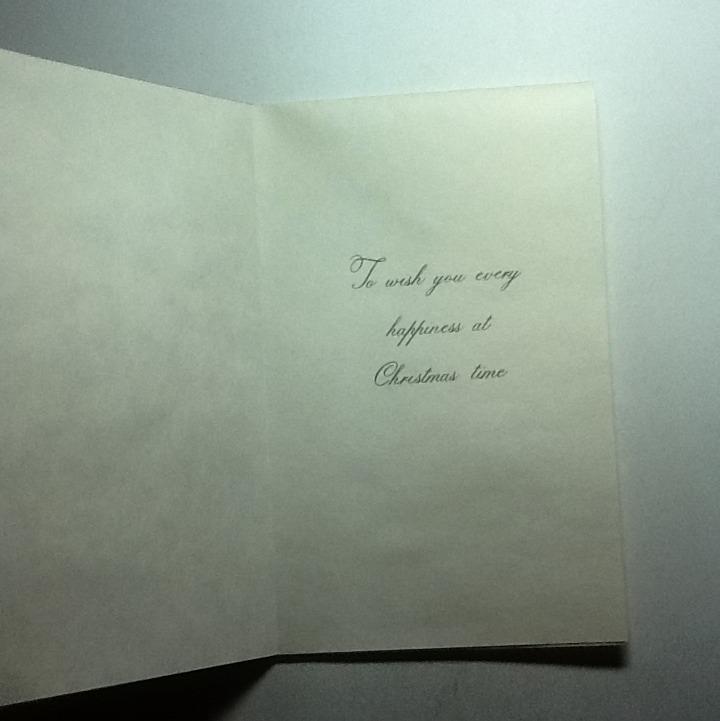 To wish you every
happiness at
Christmas time